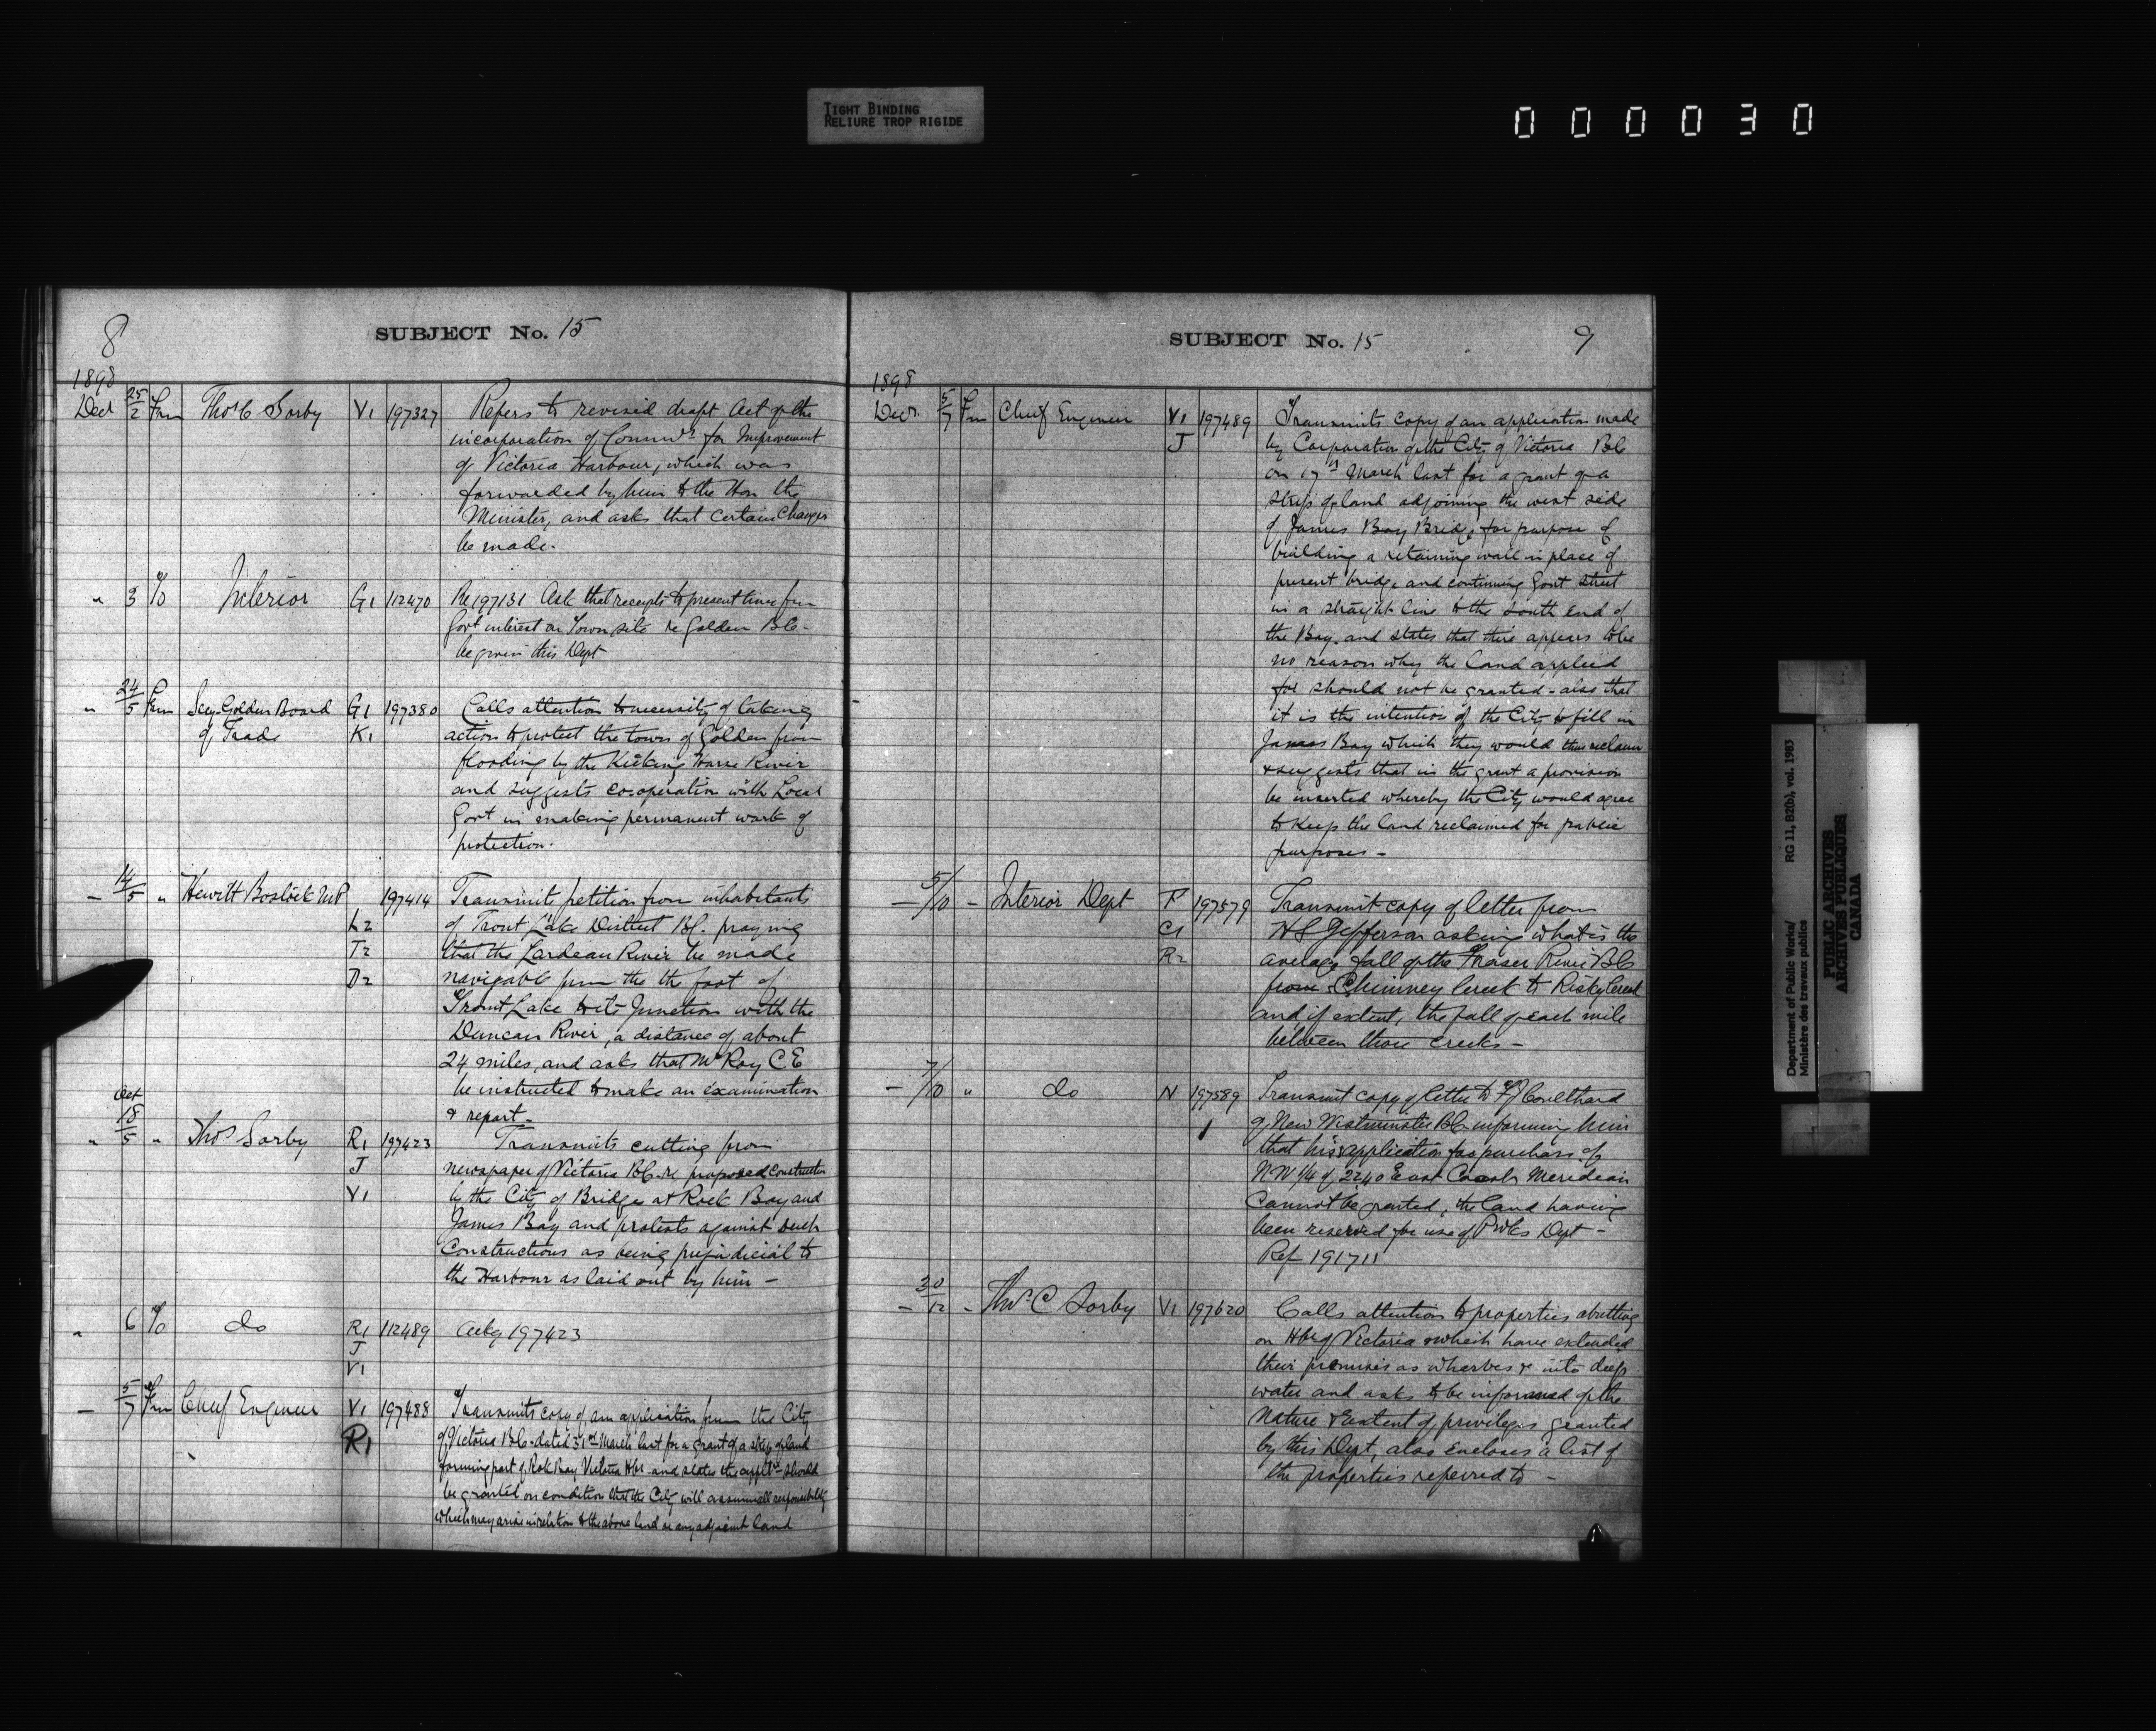 TIGHT BINDING
RELIURE TROP RIGIDE
000030
8
SUBJECT No. 15
1898
Decr 25/2 Frm Thos C Sorby V1 197327 Refers to revised draft Act of the
incorporation of Commrs for Improvement
of Victoria Harbour, which was
forwarded by him to the Hon the
Minister, and asks that certain changes
be made.
" 3 To Interior G1 112470 Re 197131 Ask that receipts to present time from
Govt interest on Town site re Golden B.C.
be given this Dept
" 24/5 Frm Secy Golden Board G1 197380 Calls attention to necessity of taking
of Trade K1 action to protect the town of Golden from
flooding by the Kicking Horse River
and suggests cooperation with Local
Govt in making permanent work of
protection.
— 14/5 " Hewitt Bostock M.P. 197414 Transmits petition from inhabitants
L2 of Trout Lake District B.C. praying
T2 that the Lardeau River be made
D2 navigable from the the foot of
Trout Lake to its Junction with the
Duncan River, a distance of about
24 miles, and asks that Mr Roy C E
be instructed to make an examination
& report —
Oct
" 18/5 " Thos Sorby R1 197423 Transmits cutting from
J newspaper of Victoria B.C. re proposed construction
V1 by the City of Bridges at Rock Bay and
James Bay and protests against such
Constructions as being prejudicial to
the Harbour as laid out by him —
" 6 To do R1 112489 Ackg 197423
J
V1
— 5/7 Frm Chief Engineer V1 197488 Transmits copy of an application from the City
R1 of Victoria B.C. dated 31st March last for a grant of a strip of land
forming part of Rock Bay, Victoria Hbr. and states the applt should
be granted on condition that the City will assume all responsibility
which may arise in relation to the above land or any adjacent land
SUBJECT No. 15
9
1898
Decr. 5/7 Frm Chief Engineer V1 197489 Transmits copy of an application made
J by Corporation of the City of Victoria B C
on 17th March last for a grant of a
strip of land adjoining the west side
of James Bay Bridge for purpose of
building a retaining wall in place of
present bridge and continuing Govt Street
in a straight line to the South end of
the Bay. and states that there appears to be
no reason why the land applied
for should not be granted - also that
it is the intention of the City to fill in
James Bay which they would thus reclaim
& suggests that in the grant a provision
be inserted whereby the City would agree
to keep the land reclaimed for public
purposes —
— 5/10 — Interior Dept F 197579 Transmit copy of letter from
C1 H S Jefferson asking what is the
R2 average fall of the Fraser River B C
from Chimney Creek to Risky Creek
and, if extent, the fall of each mile
between those creeks —
— 7/10 " do N 197589 Transmit copy of letter to F J Coulthard
of New Westminster B.C. informing him
that his application for purchase of
NW 1/4 of 2240 East Coast Meridian
Cannot be granted, the land having
been reserved for use of P Wks Dept —
Ref 191711
— 30/12 — Thos C Sorby V1 197620 Calls attention to properties abutting
on Hbr of Victoria which have extended
their premises as wharves & into deep
water and asks to be informed of the
nature & extent of privileges granted
by this Dept, also encloses a list of
the properties referred to —
Department of Public Works/ RG 11, B2(b), vol. 1983
Ministère des travaux publics
PUBLIC ARCHIVES
ARCHIVES PUBLIQUES
CANADA